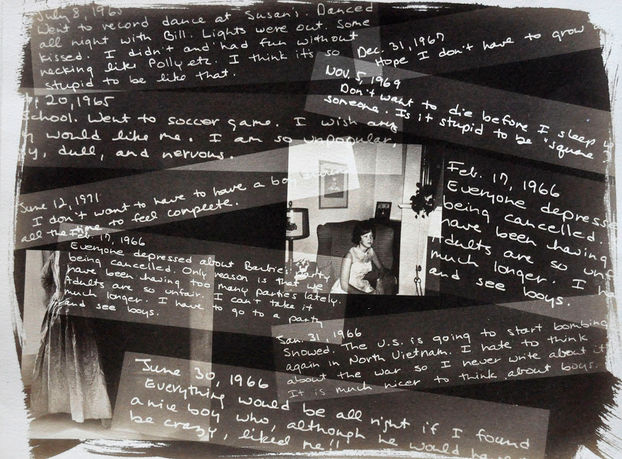 July 8, 1965
Went to record dance at Susan's. Danced
all night with Bill. Lights were out. Some
kissed. I didn't and had fun without
necking like Polly etc. I think it's so
stupid to be like that.
Dec. 31, 1967
Hope I don't have to grow
Nov. 5, 1969
Don't want to die before I sleep
someone. Is it stupid to be "square"?
20, 1965
School. Went to soccer game. I wish any
would like me. I am so unpopular,
dull, and nervous.
Feb. 17, 1966
Everyone depresse
being cancelled.
have been having
Adults are so unfa
much longer. I ha
and see boys.
June 12, 1971
I don't want to have to have a boy
all the time to feel complete.
Feb. 17, 1966
Everyone depressed about Barbie's party
being cancelled. Only reason is that we
have been having too many parties lately.
Adults are so unfair. I can't take it
much longer. I have to go to a party
and see boys.
Jan. 31, 1966
Snowed. The U.S. is going to start bombing
again in North Vietnam. I hate to think
about the war so I never write about it
It is much nicer to think about boys.
June 30, 1966
Everything would be all right if I found
a nice boy who, although he would have
be crazy, liked me!!